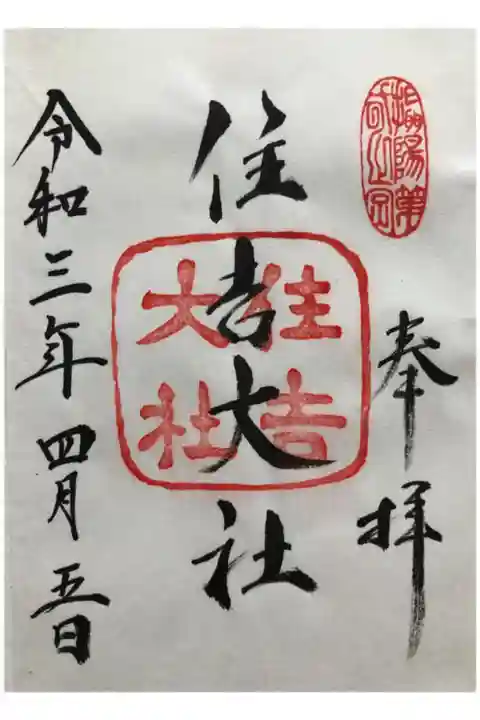 奉拝
住吉大社
住吉
大社
令和三年四月五日